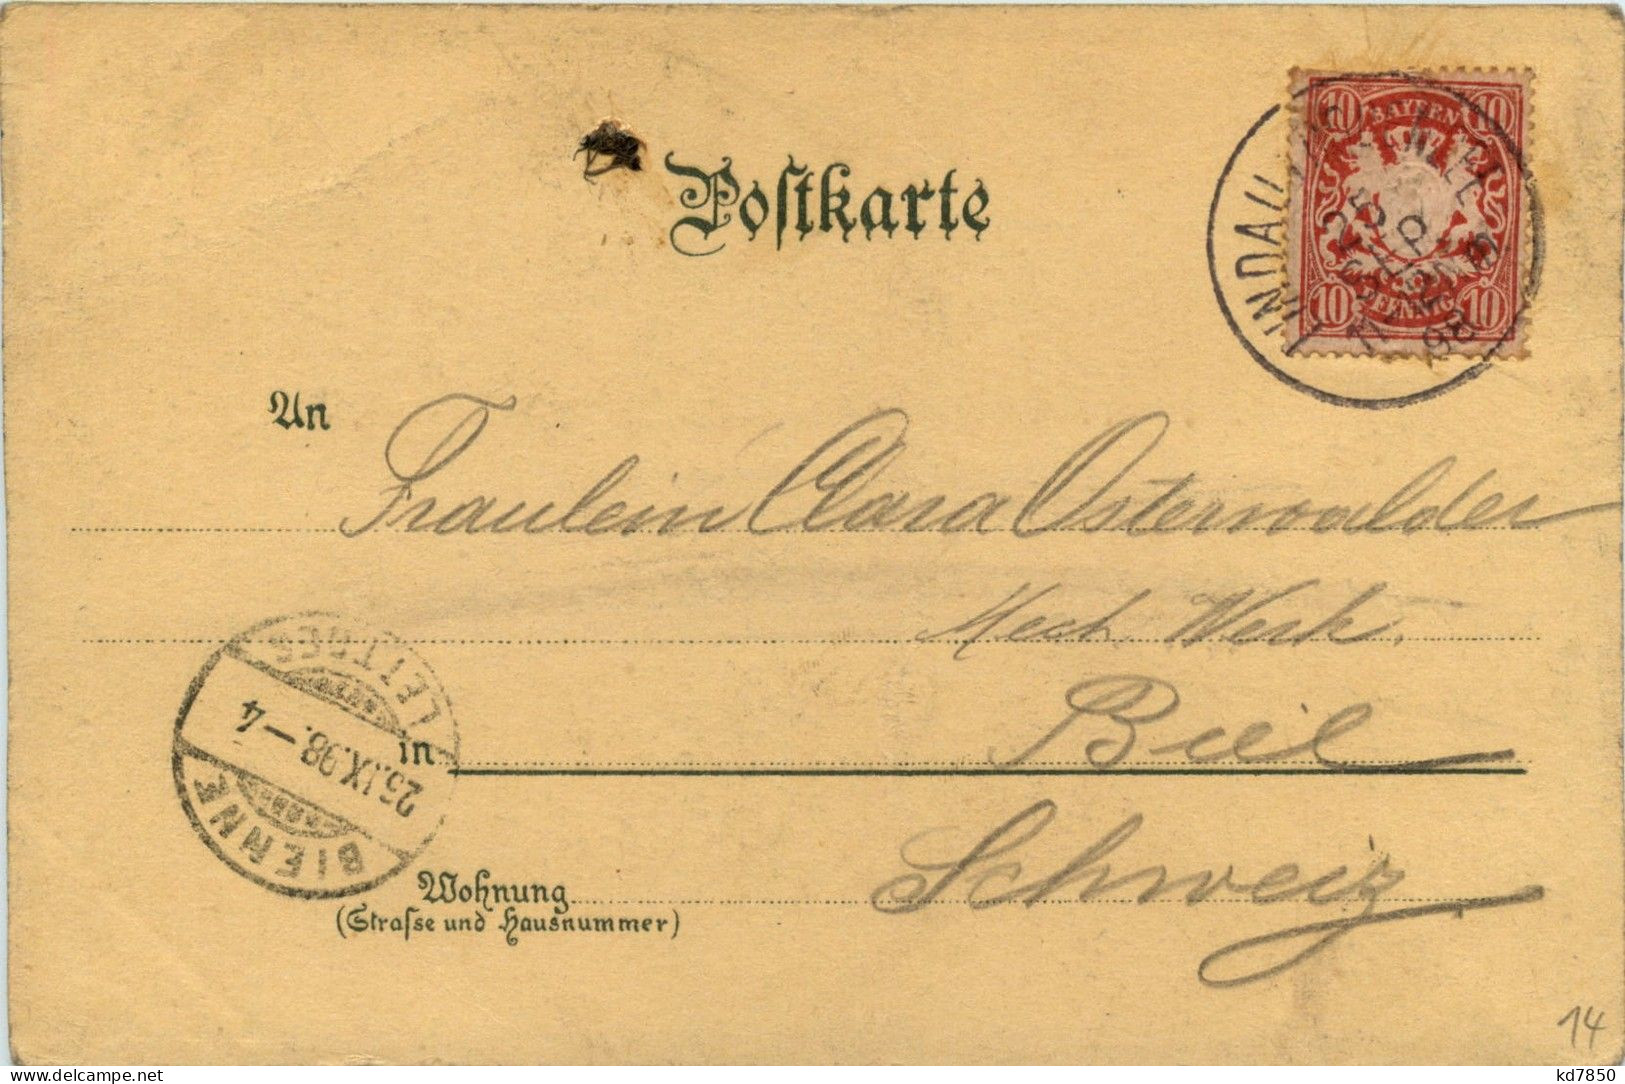 Postkarte
10 BAYERN 10
10 PFENNIG 10
LINDAU
98
An Fräulein Clara Osterwalder
Mech. Werk.
in Biel
Schweiz
Wohnung
(Strasse und Hausnummer)
BIENNE
25.IX.98.–4
LETTRES
14
www.delcampe.net
kd7850